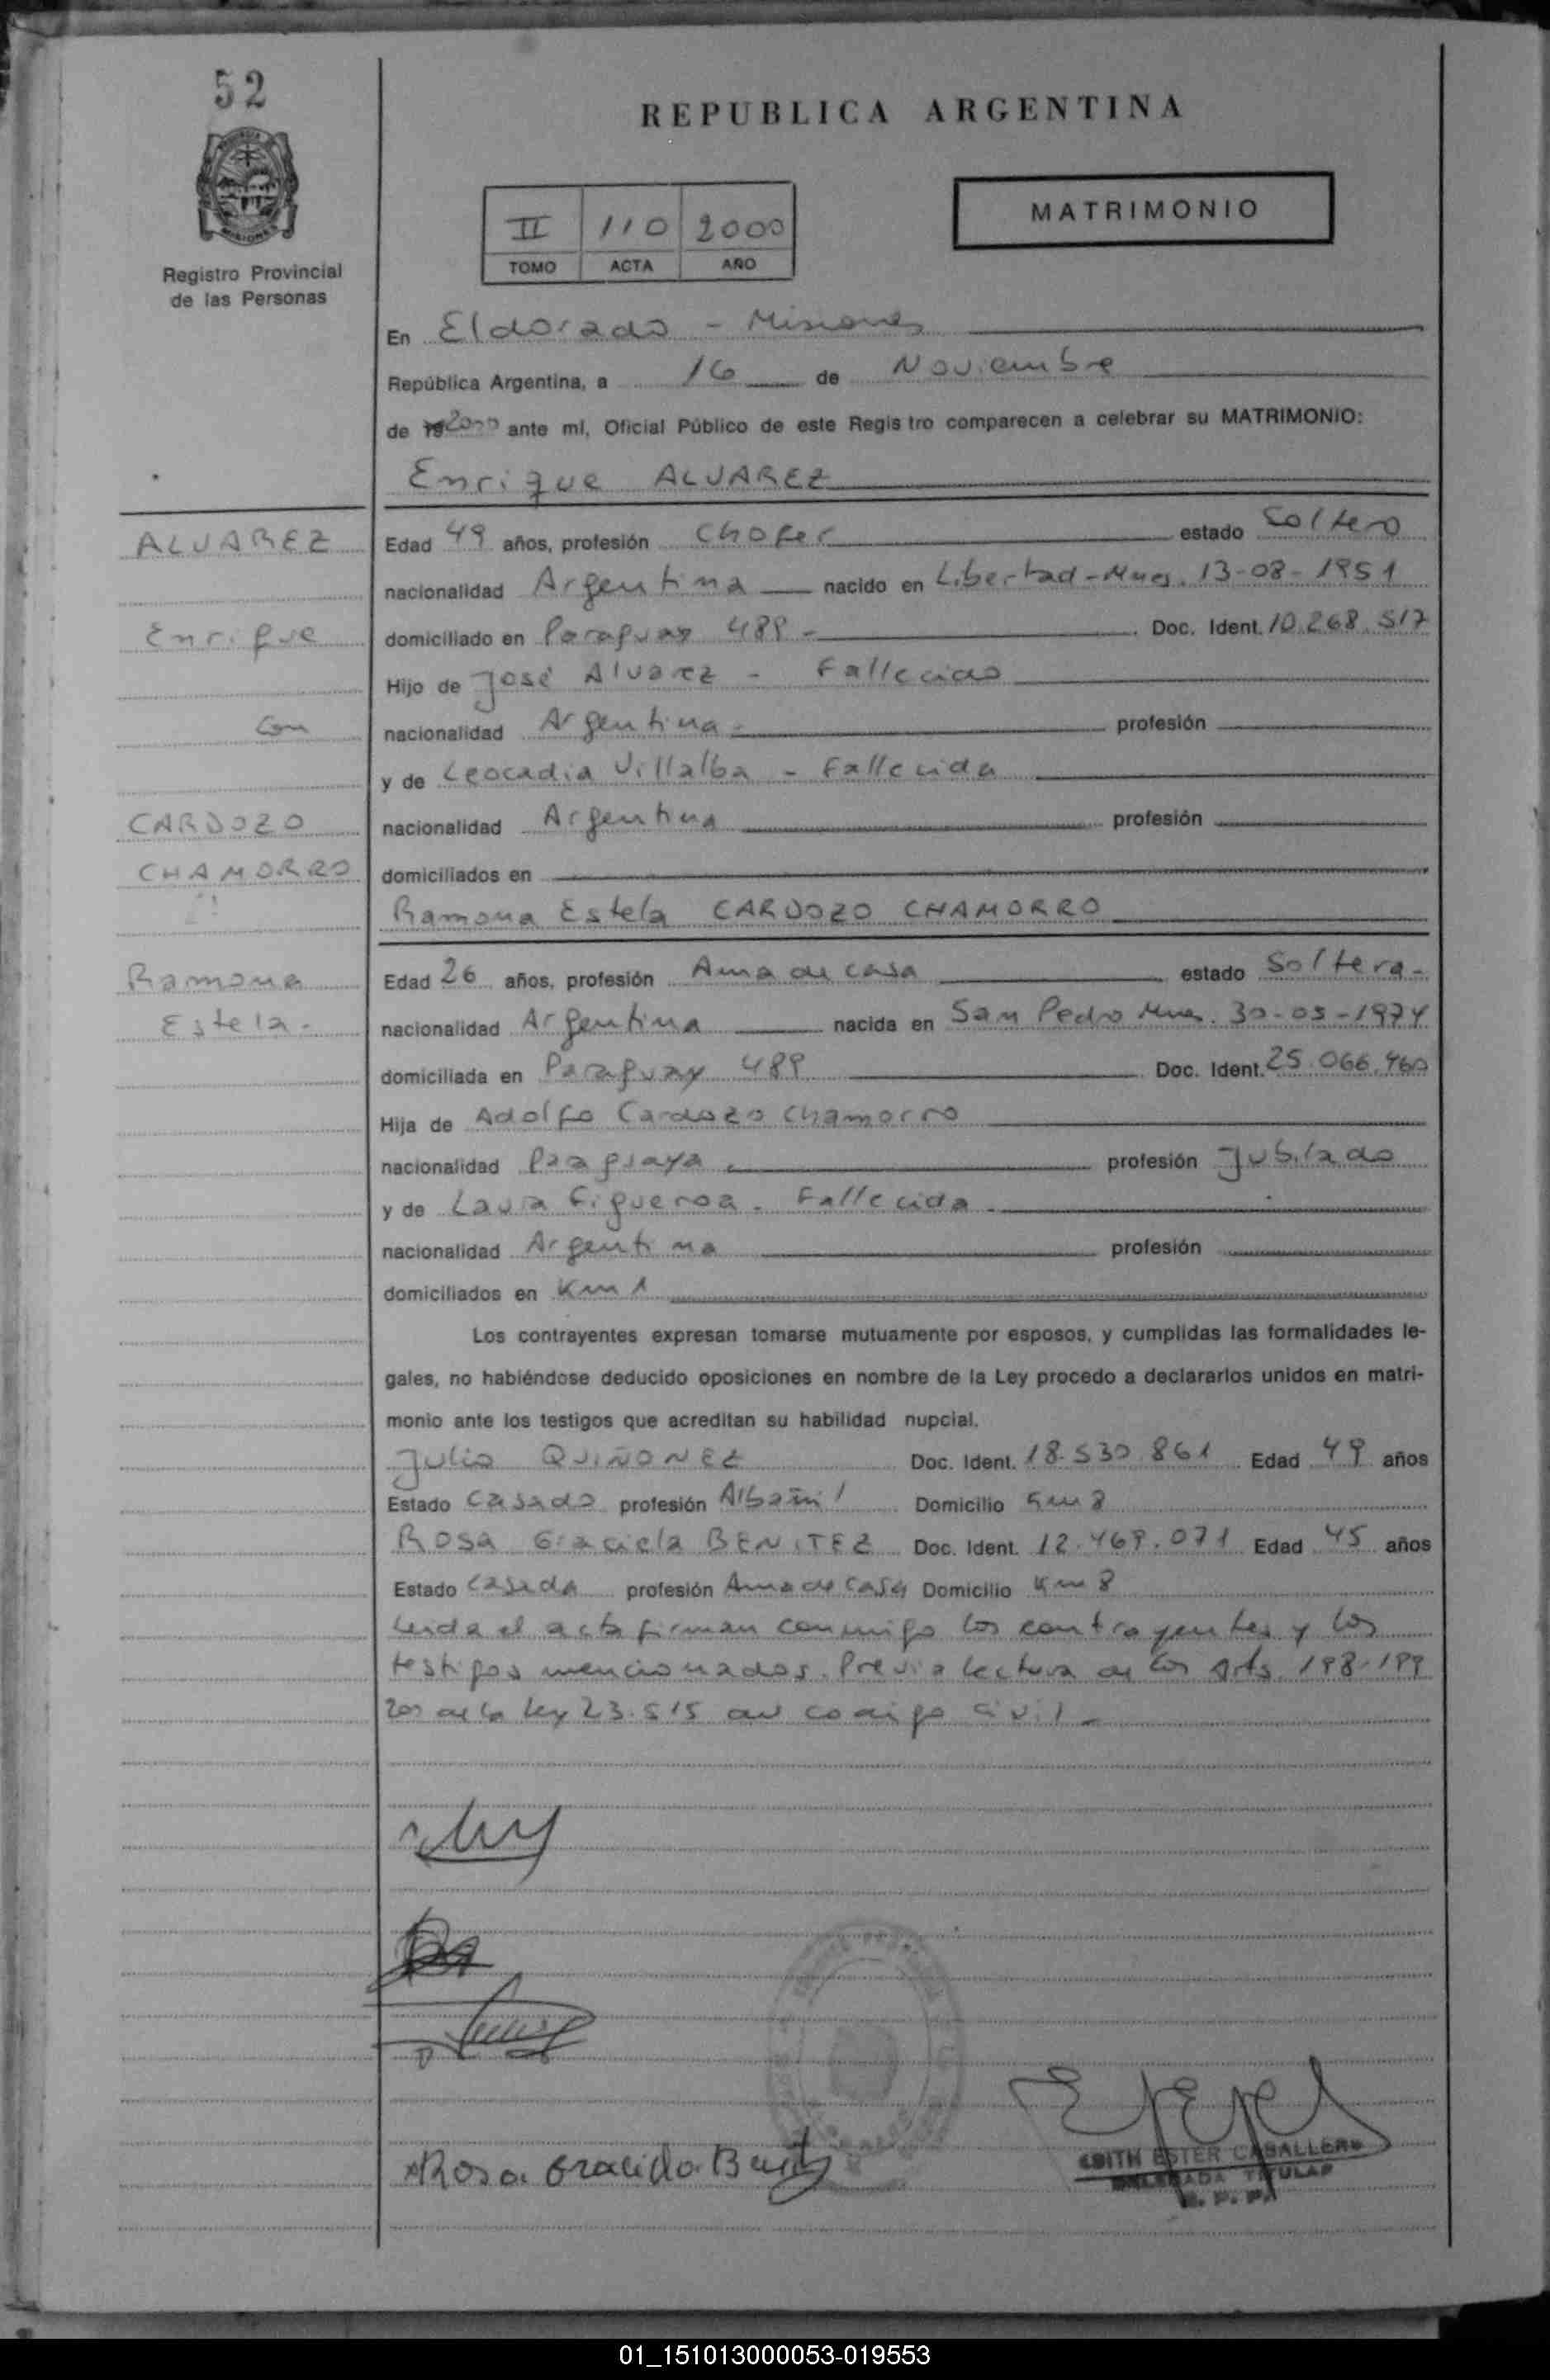 52
REPUBLICA ARGENTINA
MISIONES
Registro Provincial
de las Personas
II 110 2000
TOMO ACTA AÑO
MATRIMONIO
En Eldorado - Misiones
República Argentina, a 16 de Noviembre
de 19 2000 ante mí, Oficial Público de este Regis tro comparecen a celebrar su MATRIMONIO:
Enrique ALVAREZ
ALVAREZ
Enrique
Con
CARDOZO
CHAMORRO
Ramona
Estela.-
Edad 49 años, profesión Chofer estado Soltero
nacionalidad Argentina nacido en Libertad - Mnes. 13-08-1951
domiciliado en Paraguay 489 - Doc. Ident. 10.268.517
Hijo de José Alvarez - Fallecido
nacionalidad Argentina - profesión
y de Leocadia Villalba - Fallecida
nacionalidad Argentina profesión
domiciliados en
Ramona Estela CARDOZO CHAMORRO
Edad 26 años, profesión Ama de casa estado Soltera -
nacionalidad Argentina nacida en San Pedro Mnes. 30-05-1974
domiciliada en Paraguay 489 Doc. Ident. 25.066.460
Hija de Adolfo Cardozo Chamorro
nacionalidad Paaguaya profesión Jubilado
y de Laura Figueroa - Fallecida -
nacionalidad Argentina profesión
domiciliados en Km 1
Los contrayentes expresan tomarse mutuamente por esposos, y cumplidas las formalidades le-
gales, no habiéndose deducido oposiciones en nombre de la Ley procedo a declararlos unidos en matri-
monio ante los testigos que acreditan su habilidad nupcial.
Julio QUIÑONEZ Doc. Ident. 18.530.861 Edad 49 años
Estado Casado profesión Albañil Domicilio Km 8
Rosa Graciela BENITEZ Doc. Ident. 12.469.071 Edad 45 años
Estado Casada profesión Ama de Casa Domicilio Km 8
Leida el acta firman conmigo los contrayentes y los
testigos mencionados. Previa lectura de los Arts. 198-199
200 de la Ley 23.515 del codigo civil -
Rosa Graciela Benitez
EDITH ESTER CABALLERO
DELEGADA TITULAR
R. P. P.
01_151013000053-019553